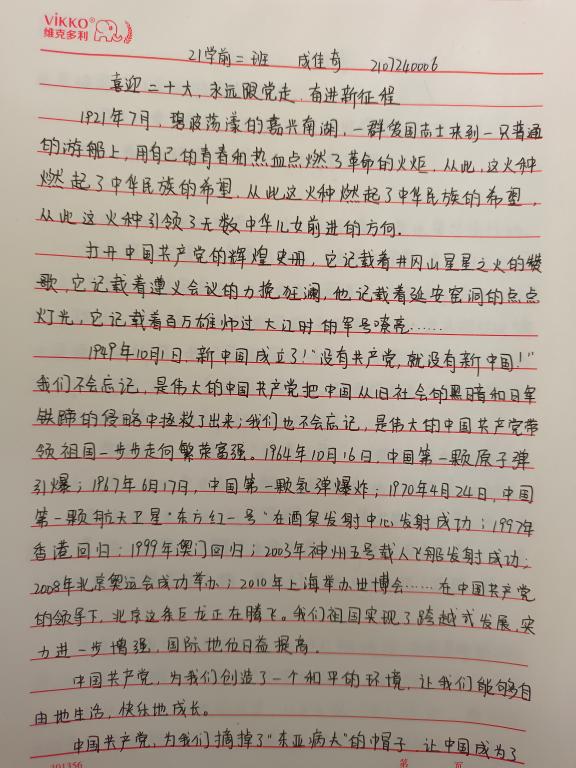 VIKKO®
维克多利
21学前二班 成佳奇 2107240006
喜迎二十大,永远跟党走,奋进新征程
1921年7月,碧波荡漾的嘉兴南湖,一群爱国志士来到一只普通
的游船上,用自己的青春和热血点燃了革命的火炬,从此,这火种
燃起了中华民族的希望,从此这火种燃起了中华民族的希望,
从此这火种引领了无数中华儿女前进的方向.
打开中国共产党的辉煌史册,它记载着井冈山星星之火的赞
歌,它记载着遵义会议的力挽狂澜,他记载着延安窑洞的点点
灯光,它记载着百万雄帅过大江时的军号嘹亮……
1949年10月1日,新中国成立了!“没有共产党,就没有新中国!”
我们不会忘记,是伟大的中国共产党把中国从旧社会的黑暗和日军
铁蹄的侵略中拯救了出来;我们也不会忘记,是伟大的中国共产党带
领祖国一步步走向繁荣富强。1964年10月16日,中国第一颗原子弹
引爆;1967年6月17日,中国第一颗氢弹爆炸;1970年4月24日,中国
第一颗航天卫星“东方红一号”在酒泉发射中心发射成功;1997年
香港回归;1999年澳门回归;2003年神州五号载人飞船发射成功;
2008年北京奥运会成功举办;2010年上海举办世博会……在中国共产党
的领导下,北京这条巨龙正在腾飞。我们祖国实现了跨越式发展,实
力进一步增强,国际地位日益提高.
中国共产党,为我们创造了一个和平的环境,让我们能够自
由地生活,快乐地成长。
中国共产党,为我们摘掉了“东亚病夫”的帽子,让中国成为了
201356 第 页